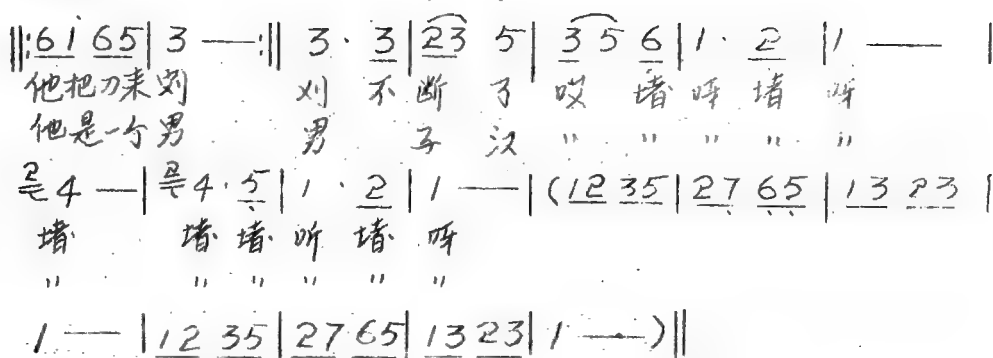 ‖:6i 65|3 —:‖ 3· 3|23 5|3 5 6|1· 2|1 —|
他把刀来刘 刈不断了哎堵呀堵呀
他是一个男 男子汉 " " " " "
4 —|4· 5|1· 2|1 —|(12 35|27 65|13 23|
堵 堵堵听堵呀
" " " " " "
1 —|12 35|27 65|13 23|1 —)‖